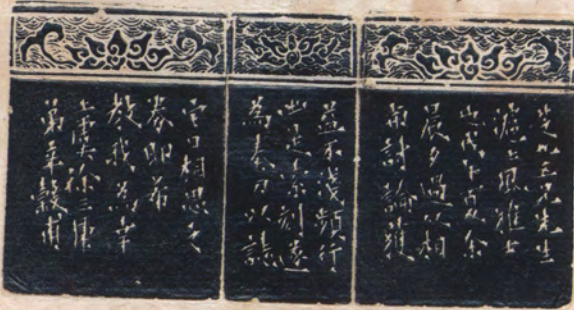 兄先生
滬上風雅士
也戊午夏余
晨夕過從相
討論獲
益不淺頻行
出是索刻遂
為奏刀以誌
它日相思之
券即希
教我為幸
上虞徐三庚
弟辛穀甫